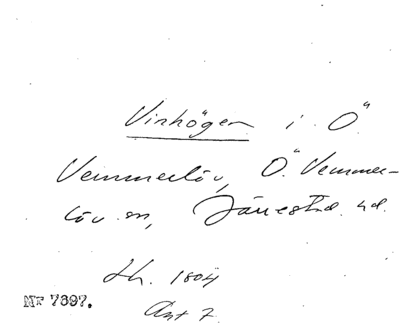 Vinhögen i Ö
Vemmerlöv, Ö. Vemmer-
löv sn, Järrestad hd.
Lh. 1804
Ant 7.
NF 7397.